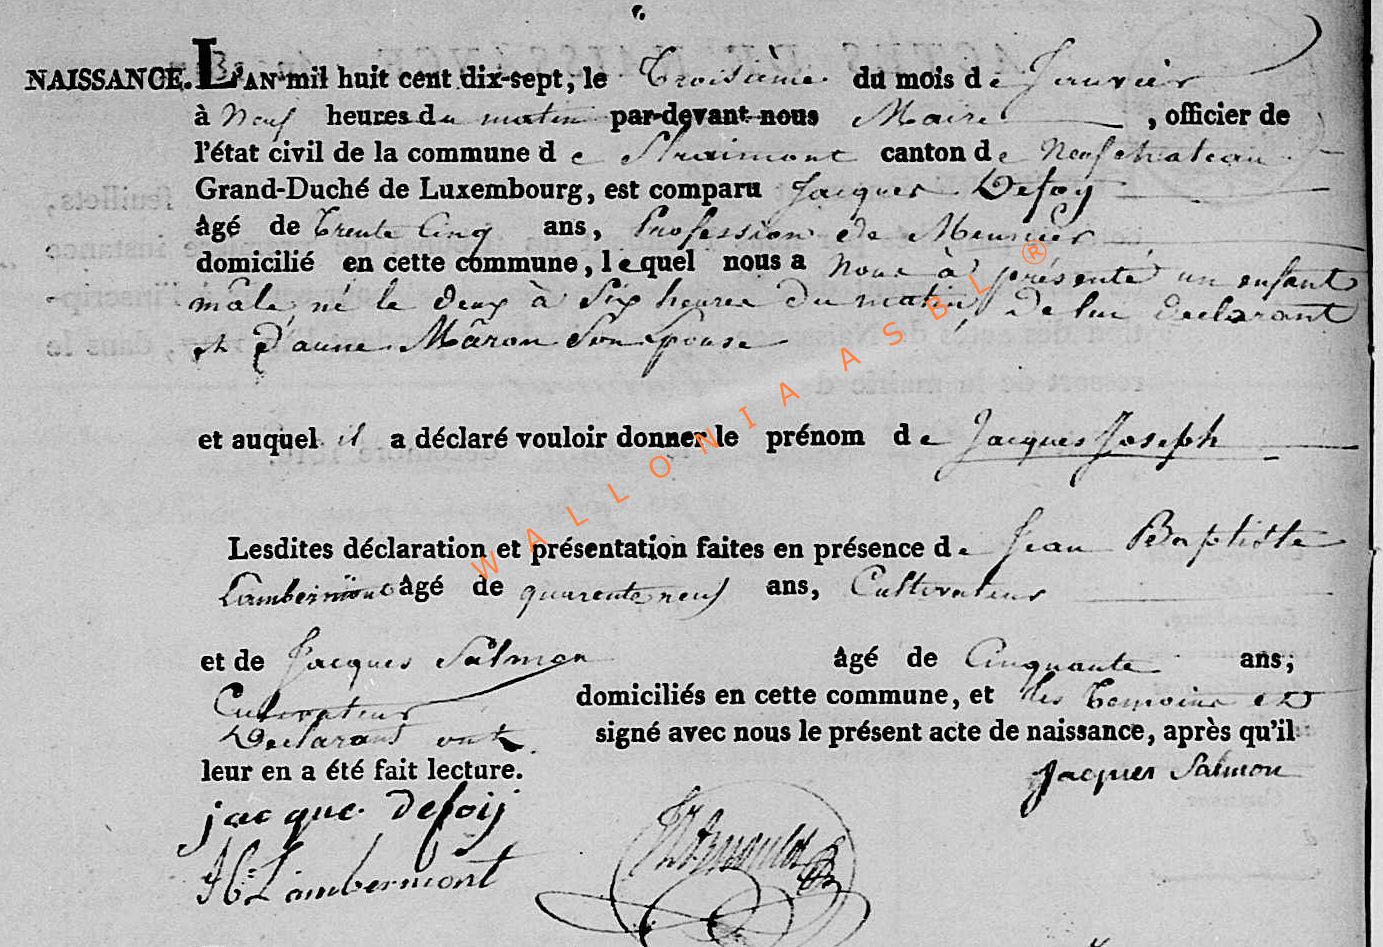 NAISSANCE. L'AN mil huit cent dix-sept, le Troisième du mois de Janvier
à Neuf heures du matin par-devant nous Maire, officier de
l'état civil de la commune de Straimont canton de Neufchateau
Grand-Duché de Luxembourg, est comparu Jacques Defoy
âgé de trente Cinq ans, Profession de Meunier
domicilié en cette commune, lequel nous a nous à présenté un enfant
mâle, né le deux à Six heures du matin, de lui declarant
et d'anne Mâron Son Epouse
et auquel il a déclaré vouloir donner le prénom de Jacques Joseph
Lesdites déclaration et présentation faites en présence de Jean Baptiste
Lambermont âgé de quarente neuf ans, Cultivateur
et de Jacques Salmon âgé de Cinquante ans,
Cultivateur domiciliés en cette commune, et les temoins et
Declarant ont signé avec nous le présent acte de naissance, après qu'il
leur en a été fait lecture.
Jacques Salmon
jacque defoij
Lambermont
WALLONIA ASBL ®